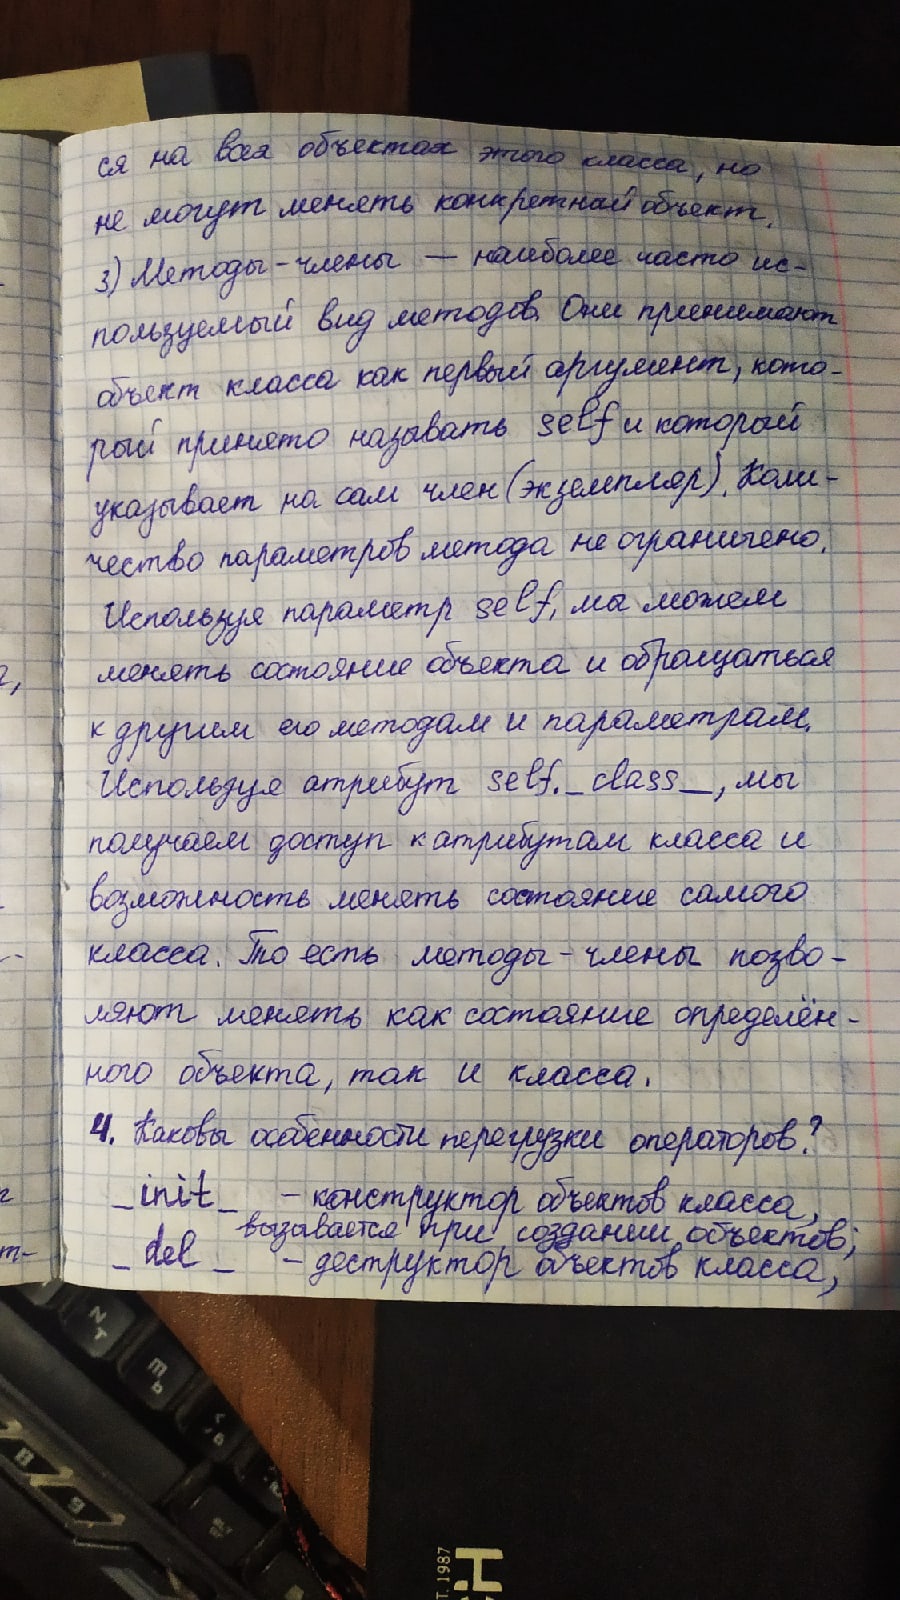 ся на всех объектах этого класса, но
не могут менять конкретный объект.
3) Методы-члены — наиболее часто ис-
пользуемый вид методов. Они принимают
объект класса как первый аргумент, кото-
рый принято называть self и который
указывает на сам член (экземпляр). Коли-
чество параметров метода не ограничено.
Используя параметр self, мы можем
менять состояние объекта и обращаться
к другим его методам и параметрам.
Используя атрибут self._class_, мы
получаем доступ к атрибутам класса и
возможность менять состояние самого
класса. То есть методы-члены позво-
ляют менять как состояние определён-
ного объекта, так и класса.
4. Каковы особенности перегрузки операторов?
_init_ – конструктор объектов класса,
вызывается при создании объектов;
_del_ – деструктор объектов класса,
N
T
Т. 1987